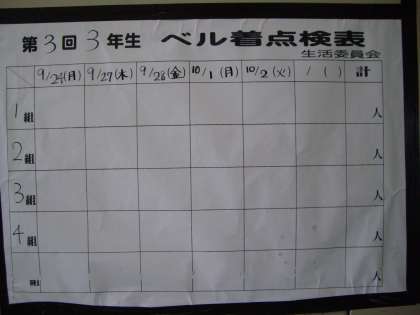 第3回 3年生 ベル着点検表
生活委員会
9/24(月) 9/27(木) 9/28(金) 10/1(月) 10/2(火) /( ) 計
1組 人
2組 人
3組 人
4組 人
組 人